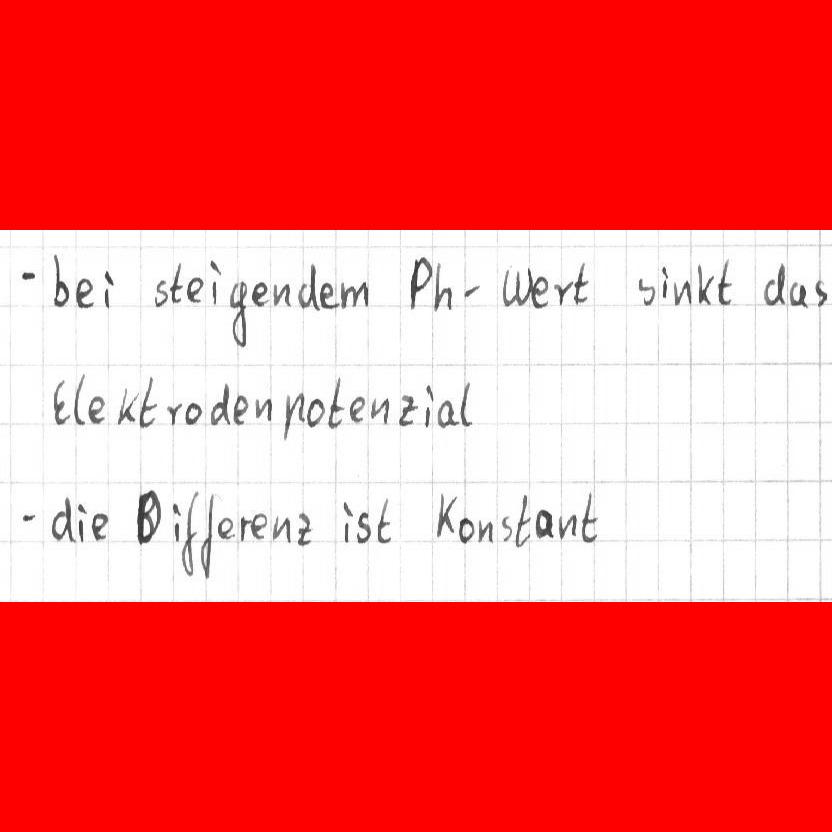 - bei steigendem Ph-Wert sinkt das
Elektrodenpotenzial
- die Differenz ist Konstant